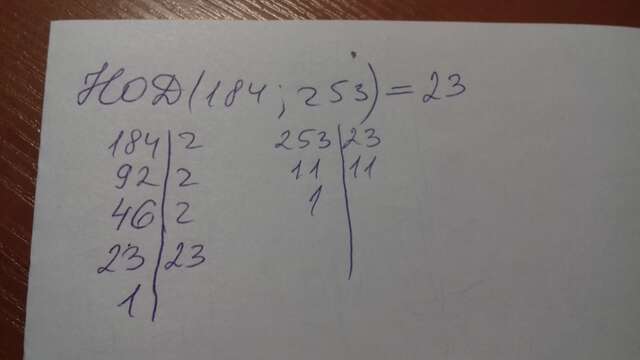 НОД(184; 253) = 23
184 | 2
92 | 2
46 | 2
23 | 23
1 |
253 | 23
11 | 11
1 |